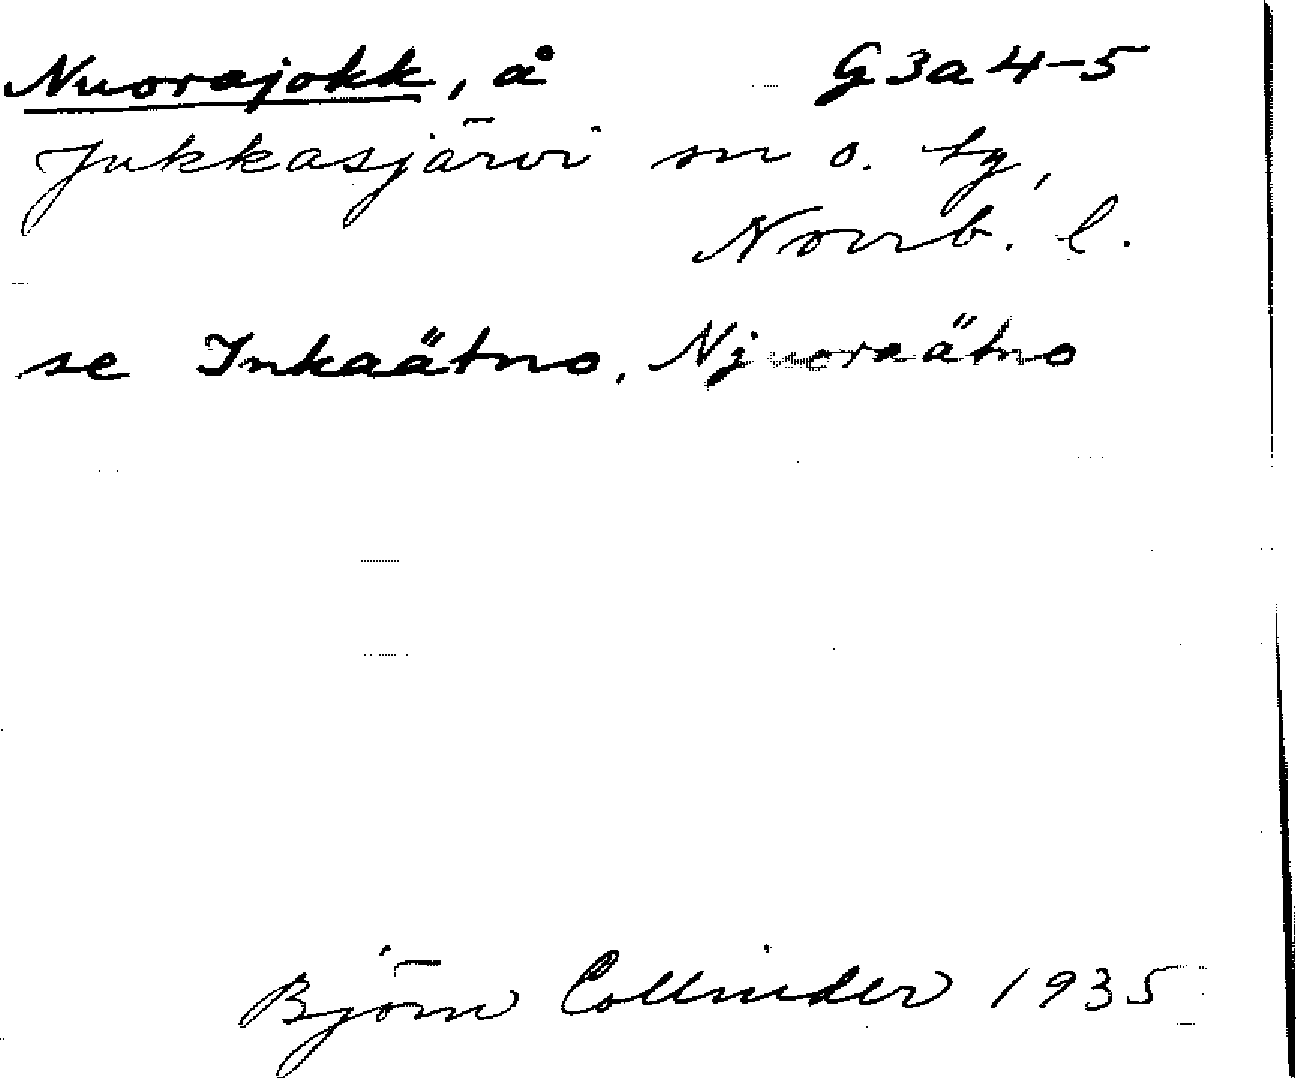 Nuorajokk, å G3a4-5
Jukkasjärvi sn o. tg,
Norrb. l.
se Inkaätno, Njuoraätno
Björn Collinder 1935